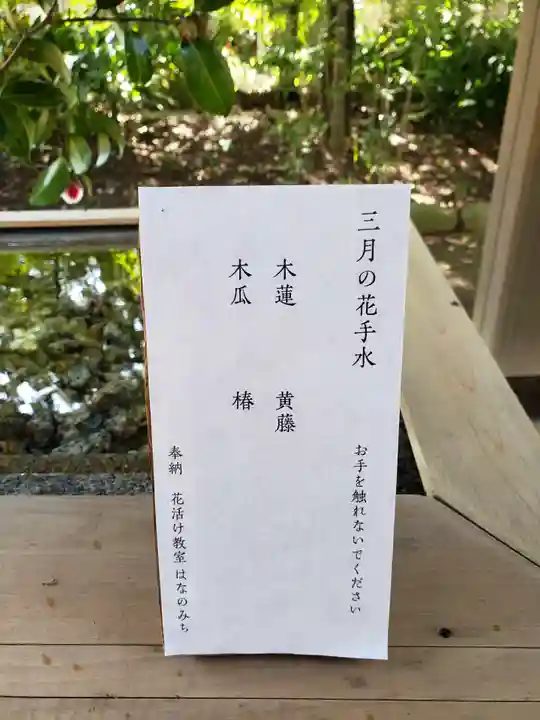 三月の花手水
お手を触れないでください
木蓮 黄藤
木瓜 椿
奉納 花活け教室 はなのみち